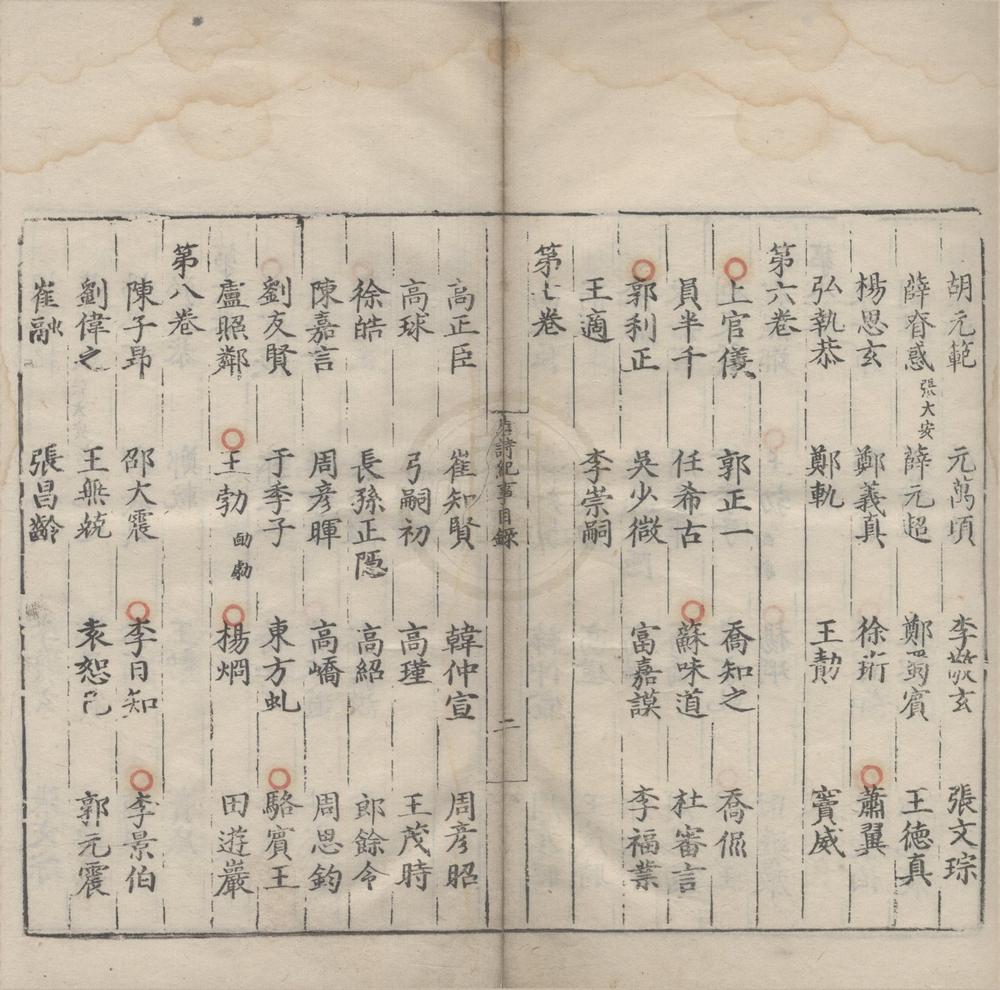 胡元範 元萬頃 李敬玄 張文琮
薛眘惑 張大安 薛元超 鄭翼賓 王德真
楊思玄 鄭義真 徐珩 蕭翼
弘執恭 鄭軌 王勣 竇威
第六卷
上官儀 郭正一 喬知之 喬偘
員半千 任希古 蘇味道 杜審言
郭利正 吳少微 富嘉謨 李福業
王適 李崇嗣
第七卷
唐詩紀事目錄 二
高正臣 崔知賢 韓仲宣 周彥昭
高球 弓嗣初 高瑾 王茂時
徐皓 長孫正隱 高紹 郎餘令
陳嘉言 周彥暉 高嶠 周思鈞
劉友賢 于季子 東方虬 駱賓王
盧照鄰 王勃 勔 勮 楊烱 田遊巖
第八卷
陳子昂 邵大震 李日知 李景伯
劉偉之 王無競 袁恕己 郭元震
崔融 張昌齡